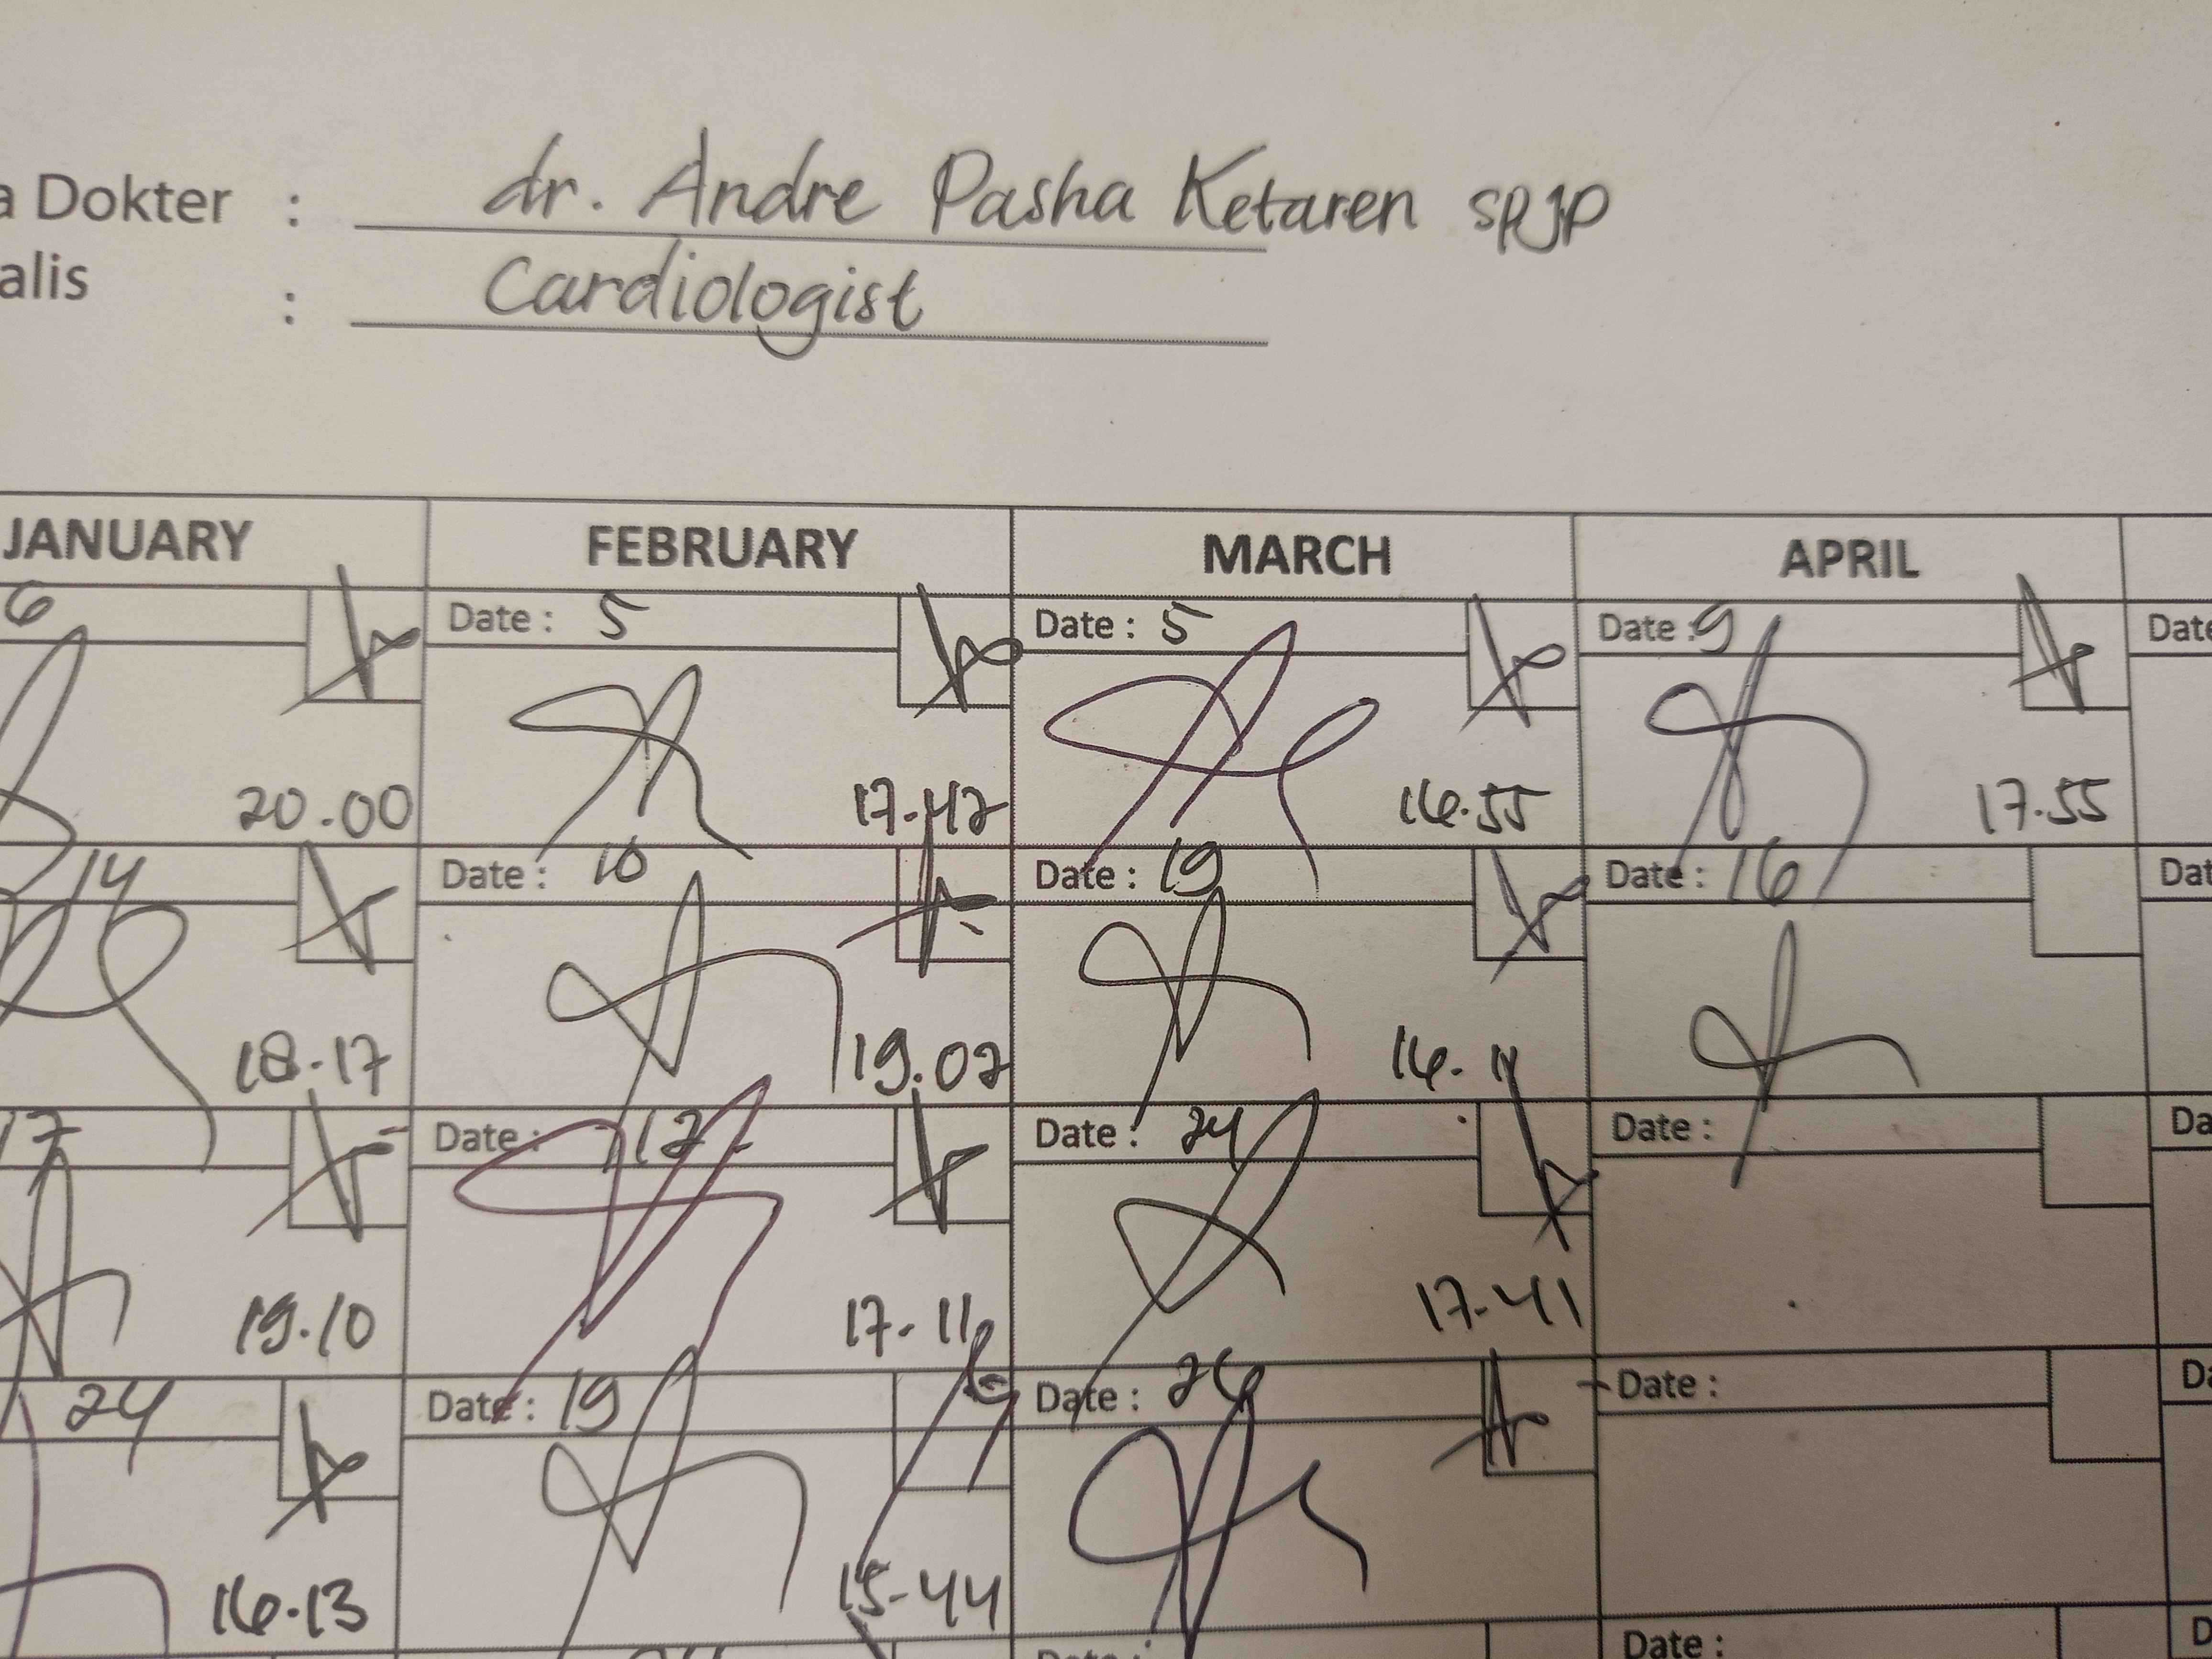 a Dokter : dr. Andre Pasha Ketaren SPJP
alis : Cardiologist
JANUARY FEBRUARY MARCH APRIL
6 Date : 5 Date : 5 Date : 9 Date
20.00 17.42 16.55 17.55
14 Date : 10 Date : 19 Date : 16 Dat
18.17 19.02 16.11
17 Date : 12 Date : 24 Date : Da
19.10 17.11 17.41
24 Date : 19 Date : 26 Date : Da
16.13 15.44
Date : Date : D